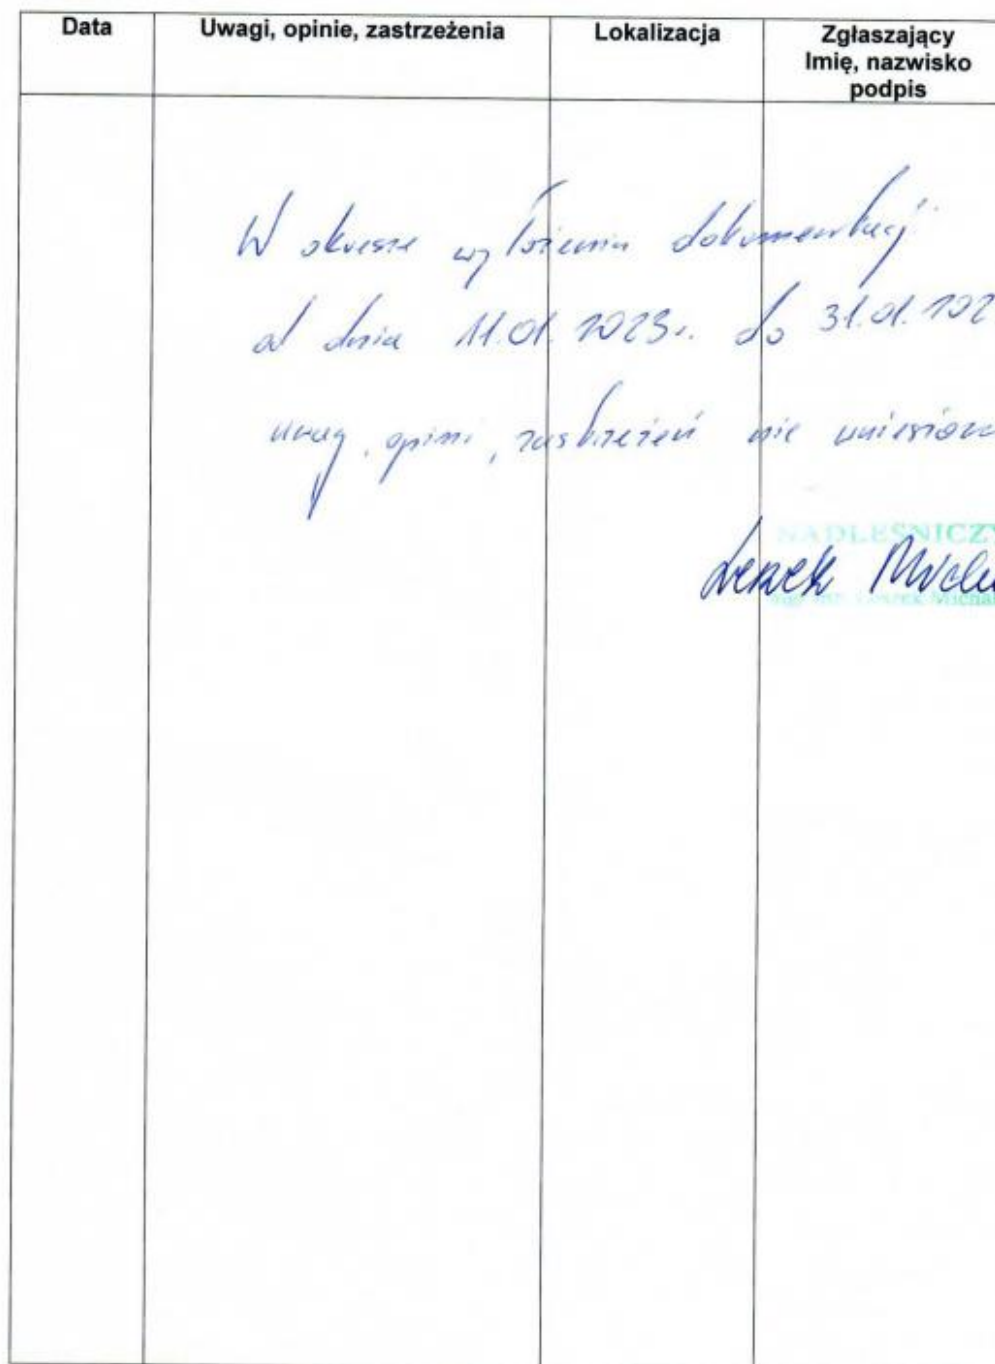 Data Uwagi, opinie, zastrzeżenia Lokalizacja Zgłaszający
Imię, nazwisko
podpis
W okresie wyłożenia dokumentacji
od dnia 11.01.2023r. do 31.01.202
uwag, opinii, zastrzeżeń nie wniesiono
NADLEŚNICZY
Leszek Micha
mgr inż. Leszek Michal